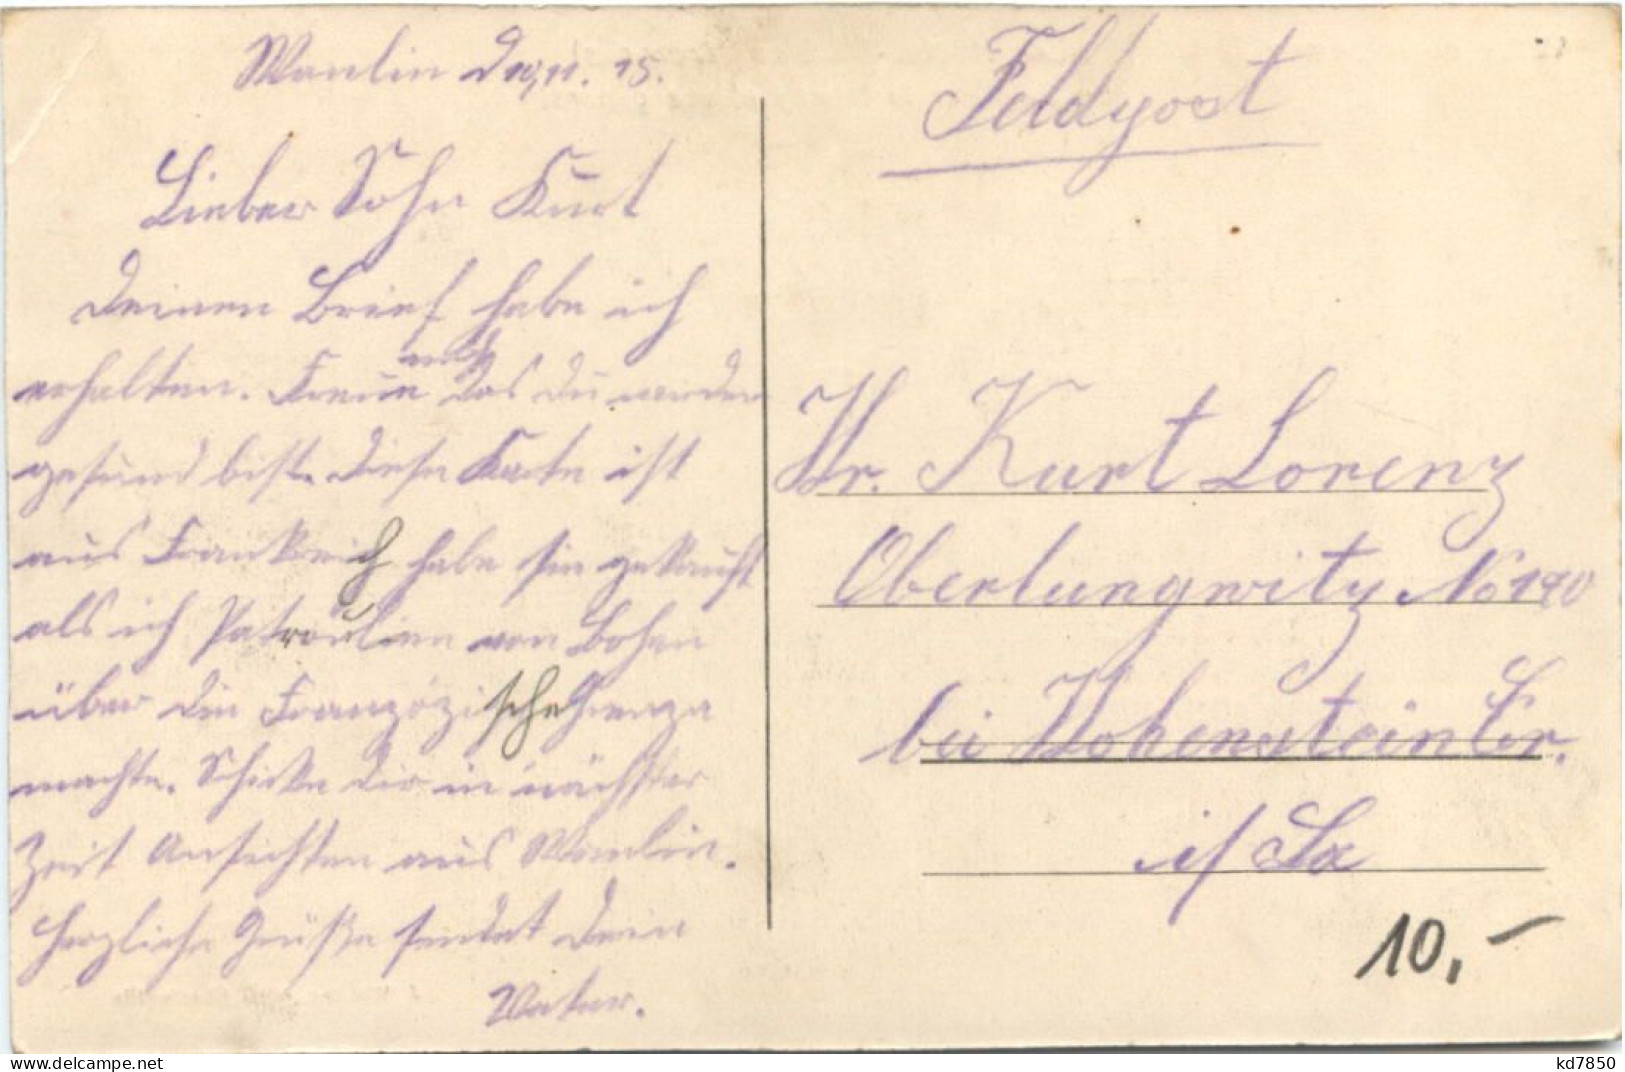 Wanlin D 10,11. 15.
Lieber Sohn Kurt
Deinen Brief habe ich
erhalten. Freue mich das du wieder
gesund bist. Diese Karte ist
aus Frankreich habe sie gekauft
als ich Patroulien von Bohan
über die Französische Grenze
machte. Schicke dir in nächster
Zeit Ansichten aus Wanlin.
Herzliche Grüße sendet Dein
Vater.
Feldpost
Hr. Kurt Lorenz
Oberlungwitz No 190
bei Hohenstein Er.
i/ Sa
10,-
kd7850